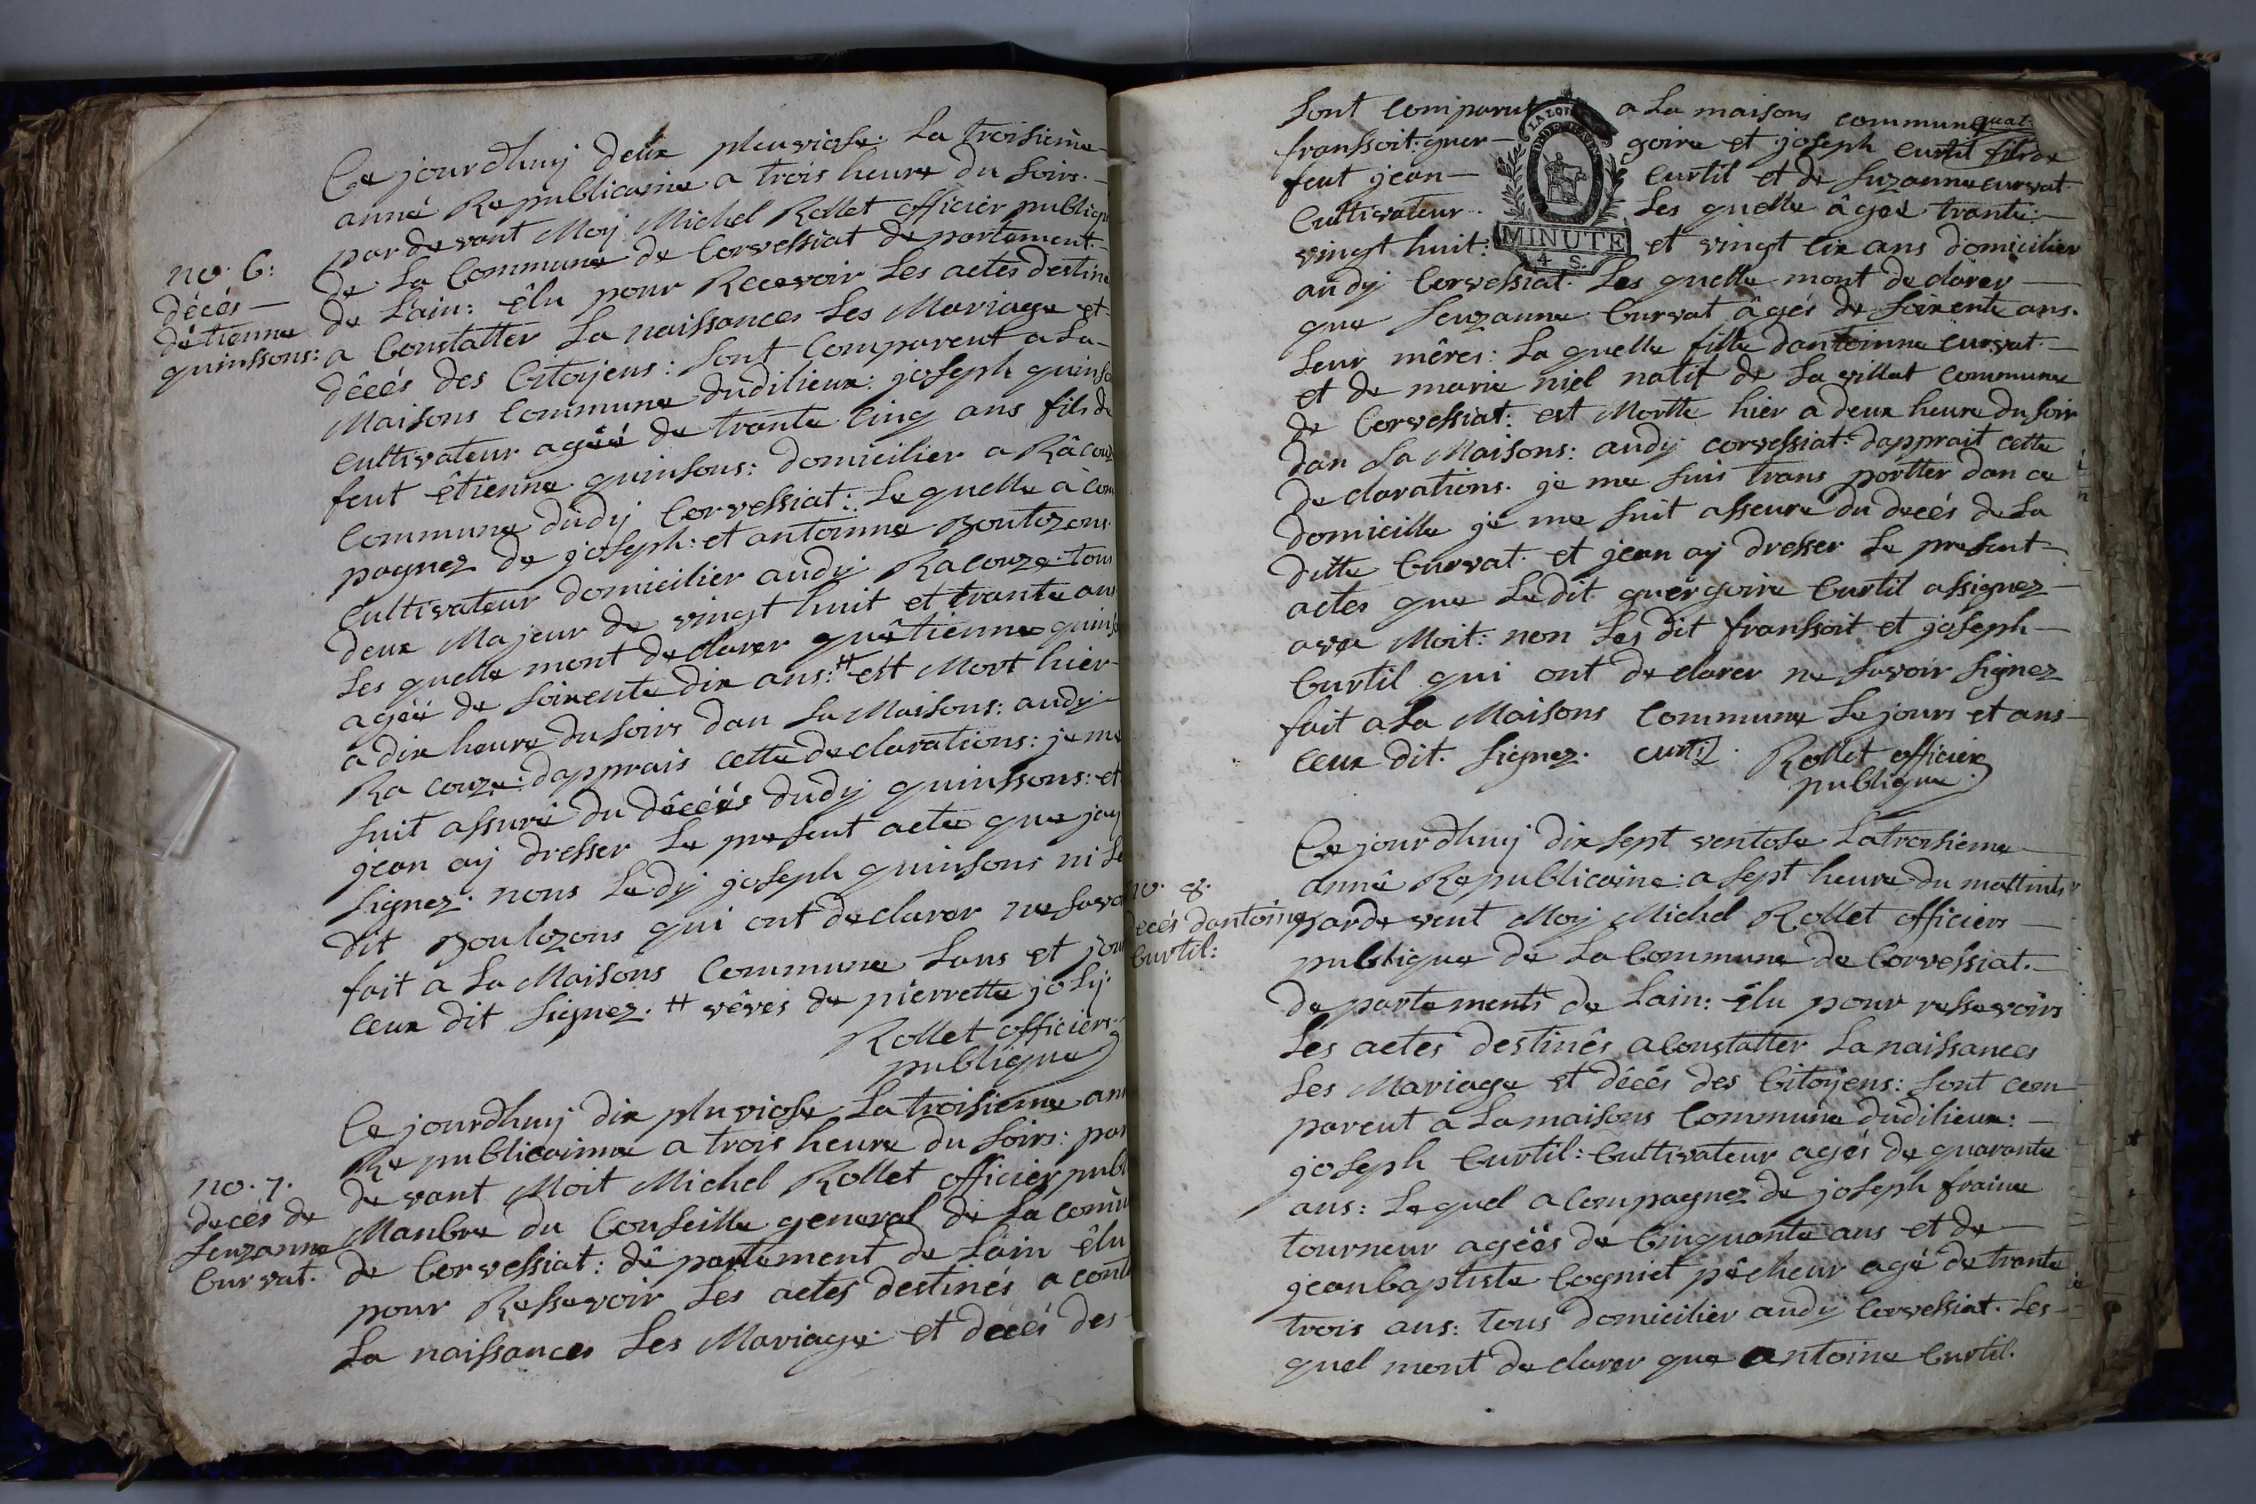 Ce jourdhuij deux pluviose La troisieme
anné Republicaine a trois heure du soirs.
par devant Moij Michel Rollet officier publique
no. 6:
décés
détienne
quinssons:
de La Commune de Corvessiat departement
de Lain: êlu pour Recevoir Les actes destine
a Constatter La naissances Les Mariage et
dêcés des Citoijens: sont Comparent a La
Maisons Commune dudilieux: joseph quinso
cultivateur agéé de trante cinq ans fils de
feut êtienne quinsons: domicilier a Râcouz
Commune dudij Corvessiat: Le quelle à com
pagnez de joseph: et antoinne
cultivateur domicilier audij Racouze tous
deux Majeur de vingt huit et trante ans
Les quelle mont declarer quêtienne quinso
agéé de soixente dix ans: # est Mort hier
a dix heure du soirs dan La Maisons: audij
Ra couze: dapprais cette declarations: je me
suit assuré du dêcéés dudij quinssons: et
jean aij dresser Le present acte que jaij
signez. nous Ledij joseph quinsons ni Le
dit qui ont declarer ne savoi
fait a La Maisons Commune Lans et jour
ceux dit signez. # vêves de pierrette jolij.
Rollet officiers
publique
Ce jourdhuij dix pluviose La troisieme ann
Republicainne a trois heure du soirs: par
no. 7.
decés de
seuzanne
Curvat.
de vant Moit Michel Rollet officier publ
Manbre du Conseille general de La comun
de Corvessiat: dêpartement de Lain êlu
pour Ressevoir Les actes destinés a const
La naissances Les Mariage et decés des
sont comparut a La maisons commune
quat.
franssoit: guer goire et joseph curtil fils de
feut jean Curtil et de suzanne curvat
Cultivateur Les quelle âgeé trante
LA LOI
MINUTE
4 S.
vingt huit: et vingt cix ans domicilier
audij Corvessiat. Les quelle mont declarer
que seuzanne Curvat âgés de soixente ans.
Leur mêres: La quelle fille dantoinne curvat
et de marie niel natif de La villat commune
de Corvessiat: est Mortte hier a deux heure du soir
dan La Maisons: audij corvessiat: dapprait cette
declarations. je me suis trans portter dan ce
domicille je me suit asseure du decés de La
ditte Curvat. et jean aij dresser Le present
actes que Ledit guergoire Curtil assignez
avec Moit: non Les dit franssoit et joseph
Curtil qui ont declarer ne savoir signez
fait a La Maisons Commune Le jours et ans
ceux dit. signez. curtil. Rollet officier
publique
Ce jourdhuij dix sept ventose La troisieme
no. 8.
ecés dantoine
Curtil:
année Republicaine: a sept heure du mattints
parde vent Moij Michel Rollet officiers
publique de La Commune de Corvessiat.
departements de Lain: êlu pour ressevoirs
Les actes destinês a Constatter La naissances
Les Mariage et décés des Citoijens: sont com
parent a La maisons Commune dudilieux:
joseph Curtil: Cultivateur agés de quarante
ans: Lequel a Compagnez de joseph fraine
tourneur agéés de Cinquante ans et de
jeanbaptiste Cogniet pêcheur agé de trante
trois ans: tous domicilier audij Corvessiat. Les
quel mont declarer que antoine Curtil.